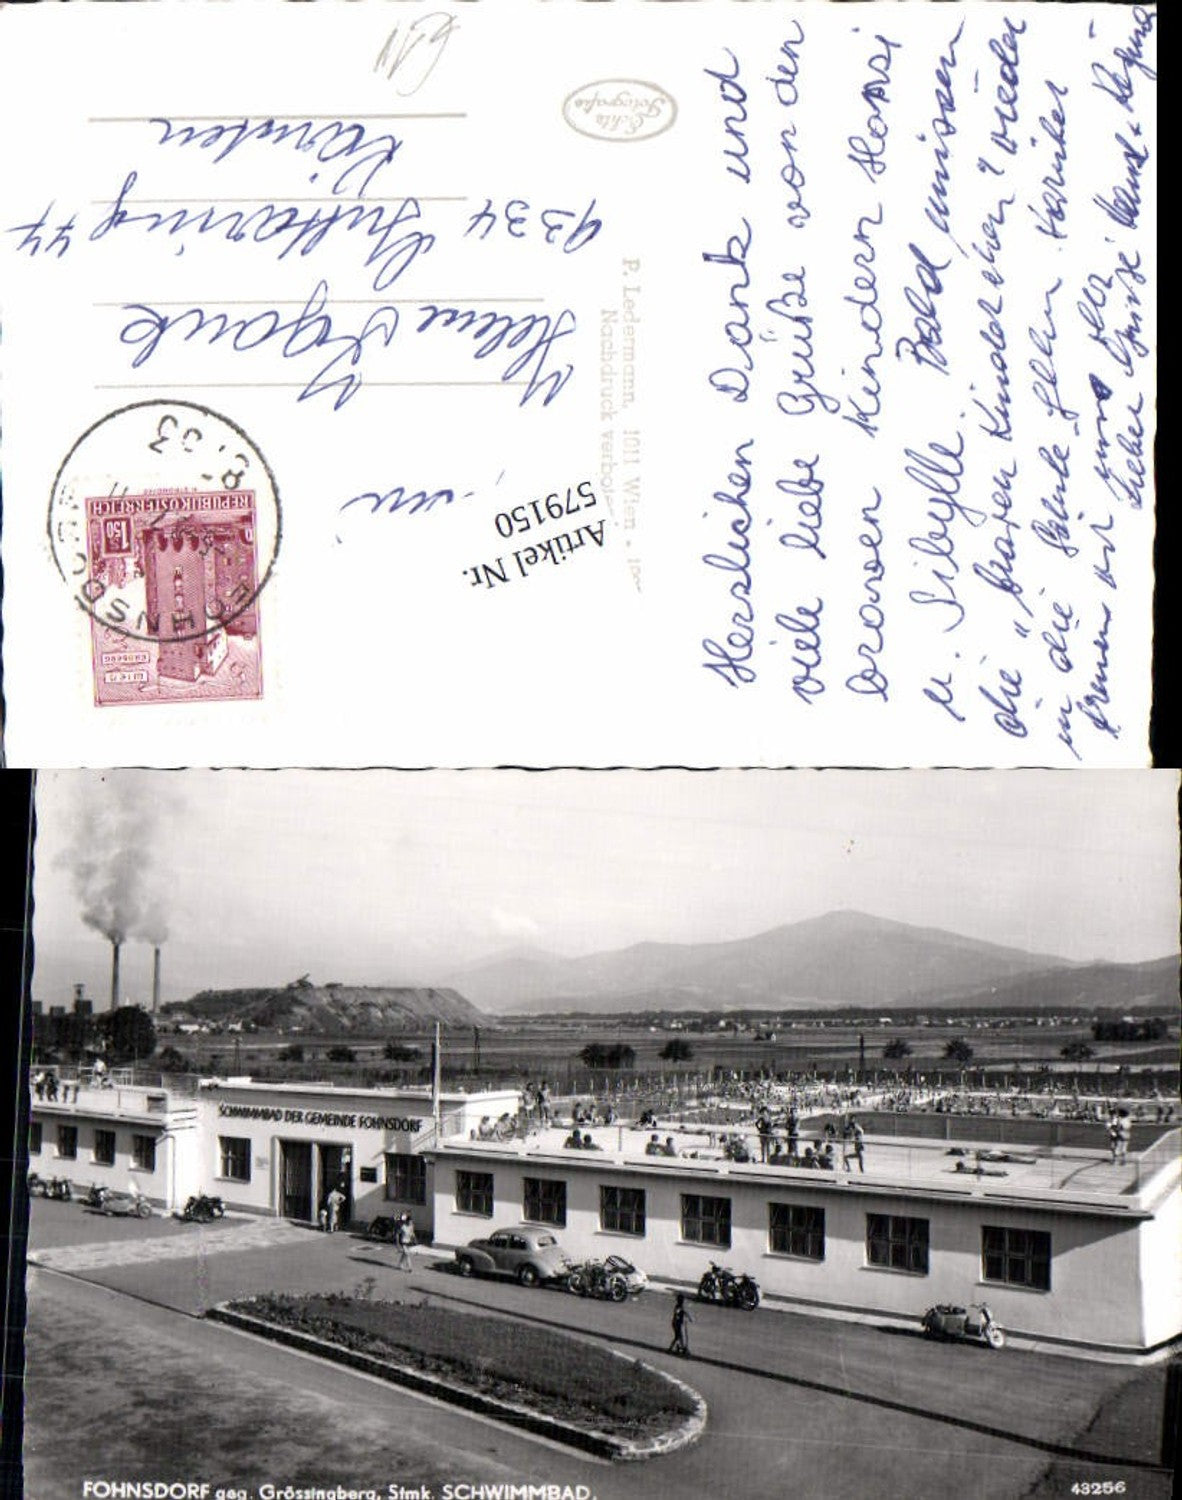 Herzlichen Dank und
viele liebe Grüße von den
braven Kindern Hansi
u. Sibylle. Bald müssen
die "braven Kinderchen" wieder
in die Schule gehen. Darüber
freuen wir uns
Liebe Grüße
Echte
Fotografie
P. Ledermann, 1011 Wien
Nachdruck verboten
Artikel Nr.
579150
REPUBLIK ÖSTERREICH
1.50
WIEN
ERDBERG
FOHNSDORF
Helene
9334 Guttaring 44
Kärnten
SCHWIMMBAD DER GEMEINDE FOHNSDORF
FOHNSDORF geg. Grössingberg, Stmk. SCHWIMMBAD.
43256